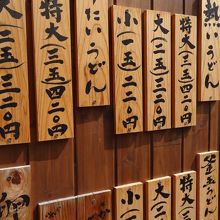 熱いうどん
特大(三玉)四二〇円
大(二玉)三二〇円
小(一玉)
たいうどん
特大(三玉)四二〇円
大(二玉)三二〇円
特大(三
大(二
小(